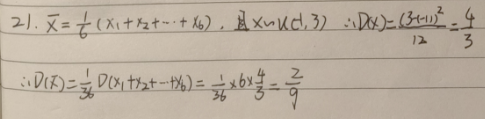 21. X̄ = 1/6 (x₁+x₂+⋯+x₆), 且 x~U(-1, 3) ∴D(x)=(3-(-1))²/12=4/3
∴D(X̄)=1/36 D(x₁+x₂+⋯+x₆)=1/36×6×4/3=2/9